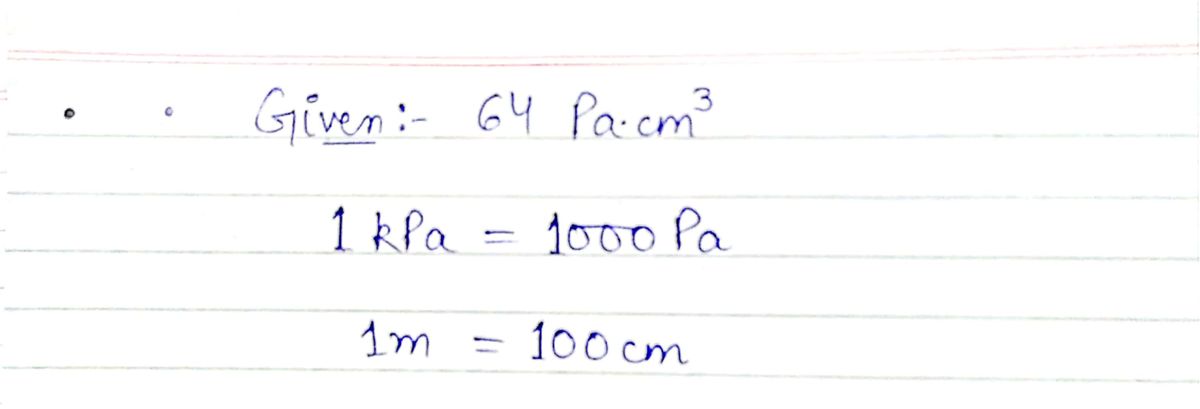 Given :- 64 Pa.cm³
1 kPa = 1000 Pa
1m = 100 cm